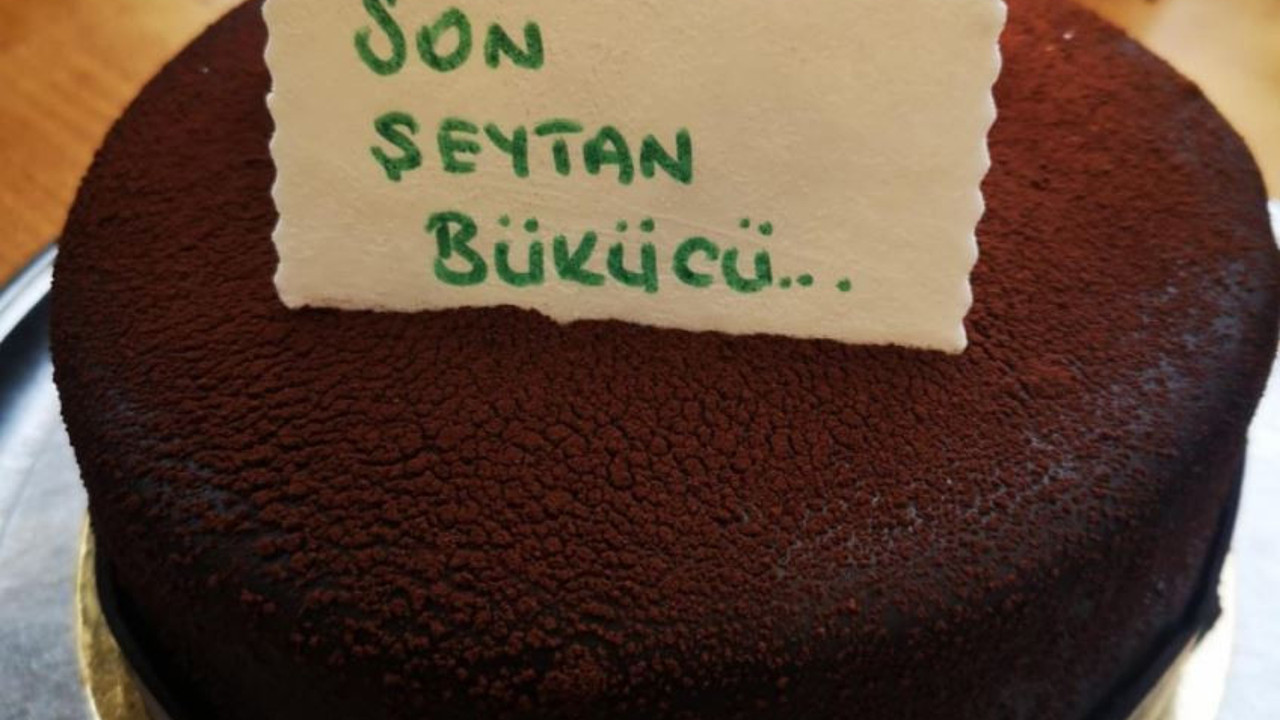 SON
ŞEYTAN
BÜKÜCÜ...